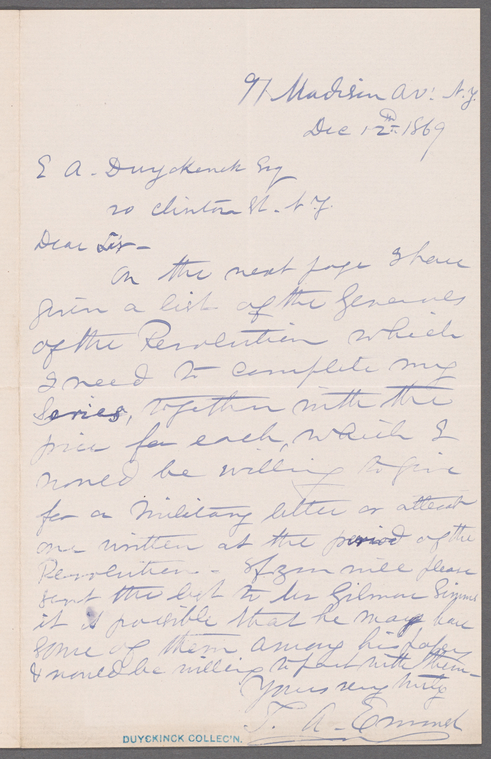 91 Madison Av: N.Y.
Dec 12th 1869
E A. Duyckinck Esq
20 Clinton St. N Y.
Dear Sir -
On the next page I have
given a list of the Generals
of the Revolution which
I need to complete my
Series, together with the
price for each, which I
would be willing to give
for a Military letter or atleast
one written at the period of the
Revolution - If you will please
sent the list to Mr Gilmor Simms
it is possible that he may have
some of them among his papers
& would be willing to part with them -
Yours very truly
T. A. Emmet
DUYCKINCK COLLEC'N.